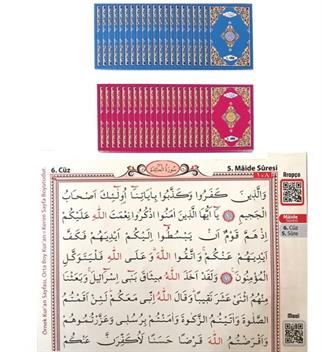 6. Cüz
سورة المائدة
5. Mâide Sûresi
١٠٨
Arapça
وَالَّذِينَ كَفَرُوا وَكَذَّبُوا بِاٰيَاتِنَٓا اُو۬لٰٓئِكَ اَصْحَابُ
الْجَحِيمِ يَٓا اَيُّهَا الَّذِينَ اٰمَنُوا اذْكُرُوا نِعْمَتَ اللّٰهِ عَلَيْكُمْ
اِذْ هَمَّ قَوْمٌ اَنْ يَبْسُطُٓوا اِلَيْكُمْ اَيْدِيَهُمْ فَكَفَّ
اَيْدِيَهُمْ عَنْكُمْ وَاتَّقُوا اللّٰهَ وَعَلَى اللّٰهِ فَلْيَتَوَكَّلِ
الْمُؤْمِنُونَ وَلَقَدْ اَخَذَ اللّٰهُ مِيثَاقَ بَنِٓي اِسْرَٓائِلَ وَبَعَثْنَا
مِنْهُمُ اثْنَيْ عَشَرَ نَقِيبًا وَقَالَ اللّٰهُ اِنِّي مَعَكُمْ لَئِنْ اَقَمْتُمُ
الصَّلٰوةَ وَاٰتَيْتُمُ الزَّكٰوةَ وَاٰمَنْتُمْ بِرُسُلِي وَعَزَّرْتُمُوهُمْ
وَاَقْرَضْتُمُ اللّٰهَ قَرْضًا حَسَنًا لَاُكَفِّرَنَّ عَنْكُمْ
Mâide
Sûresi
6. Cüz
5. Sûre
Meal
Örnek Kur'an Sayfası, Orta Boy Kur'an-ı Kerim Sayfa Boyutudur.